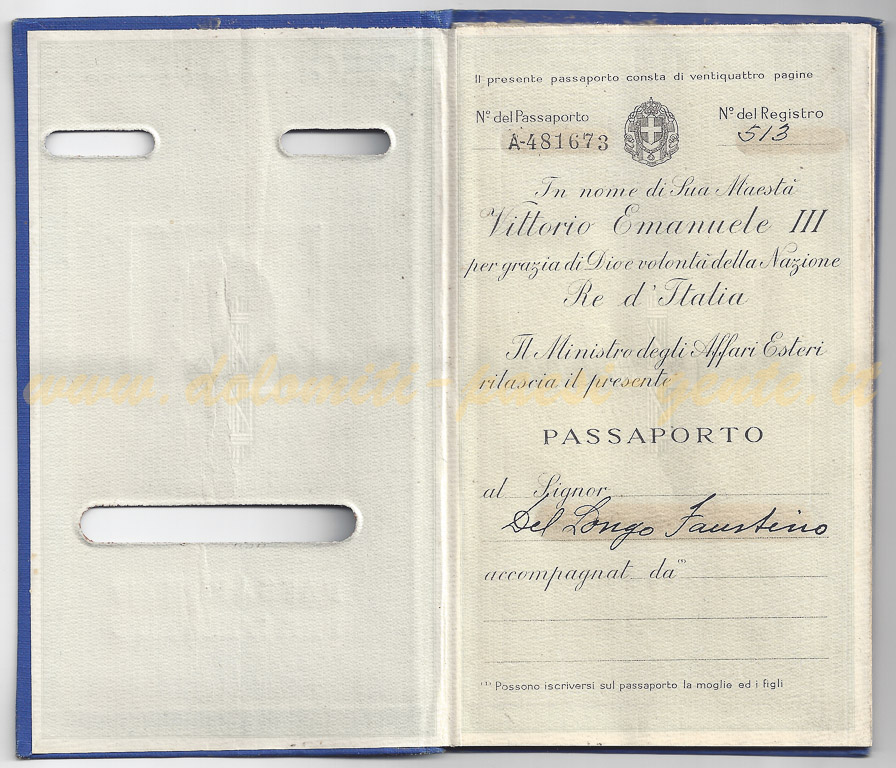 Il presente passaporto consta di ventiquattro pagine
Nº del Passaporto
A-481673
Nº del Registro
513
In nome di Sua Maestà
Vittorio Emanuele III
per grazia di Dio e volontà della Nazione
Re d'Italia
Il Ministro degli Affari Esteri
rilascia il presente
PASSAPORTO
al Signor
Del Longo Faustino
accompagnat da (1)
(1) Possono iscriversi sul passaporto la moglie ed i figli